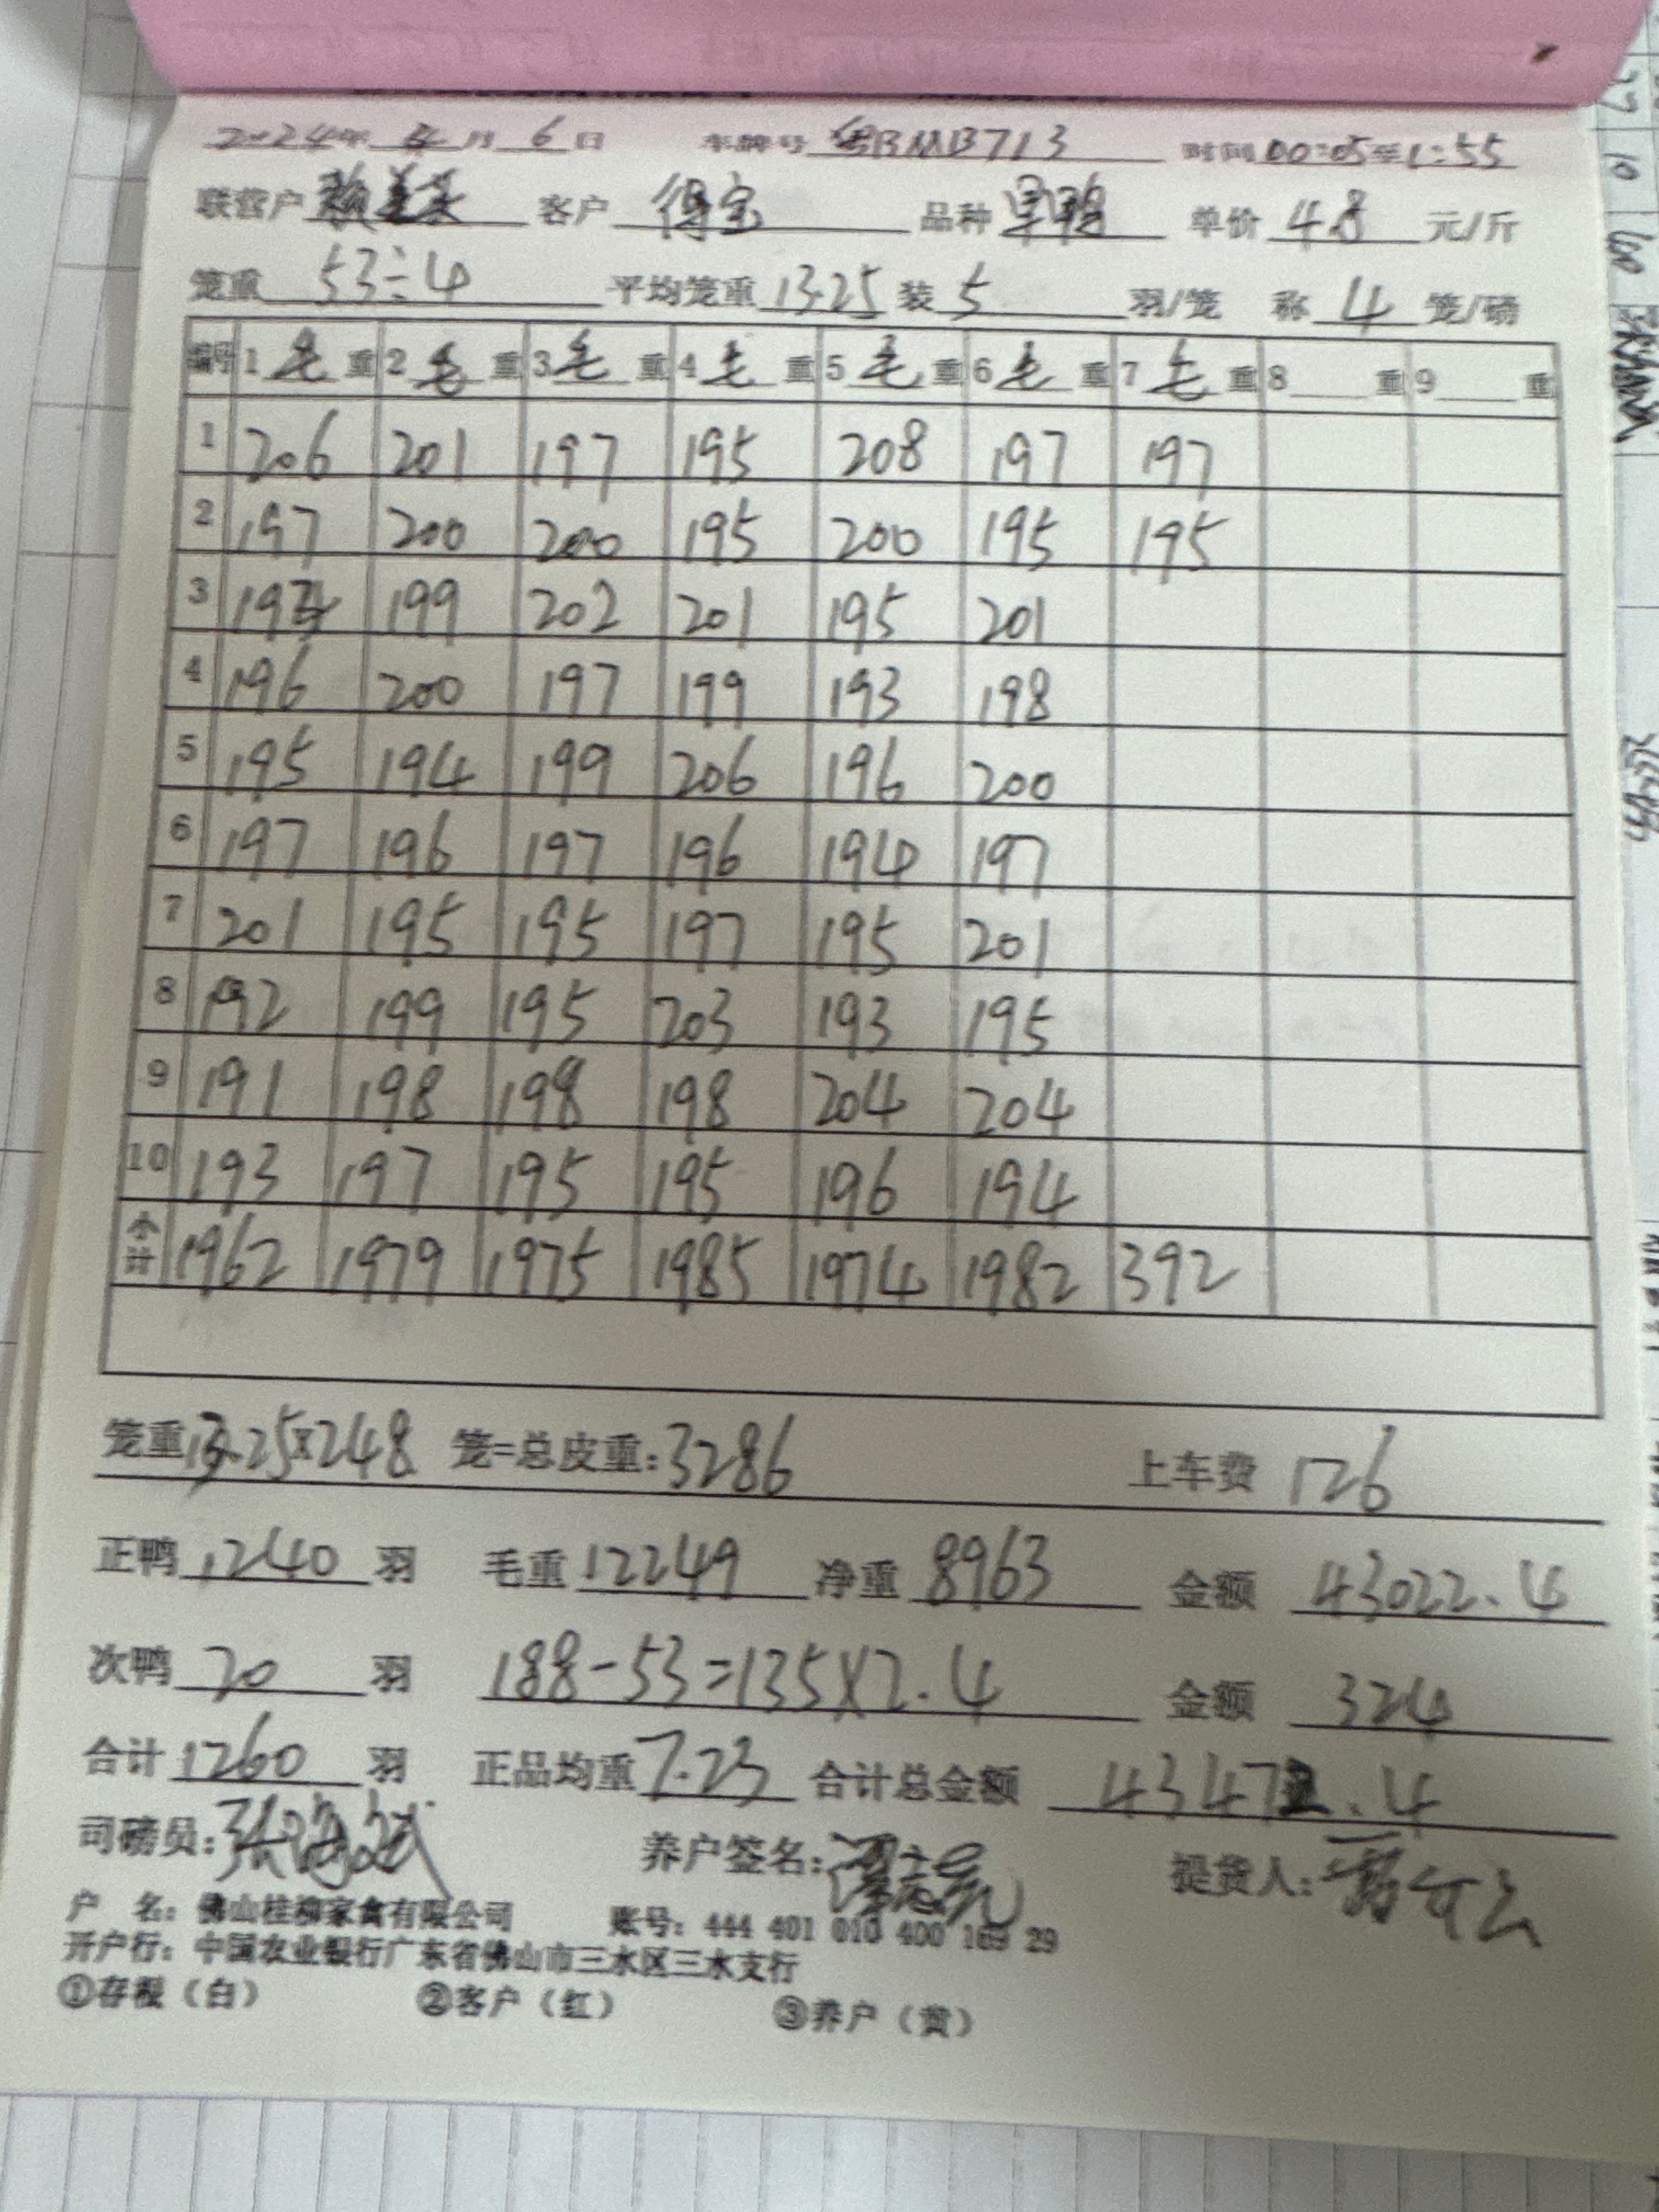 2024年 4月 6日 车牌号 粤BMB713 时间 00:05至1:55
联营户 客户 得宝 品种 旱鸭 单价 4.8 元/斤
笼重 53÷4 平均笼重 13.25 装 5 羽/笼 称 4 笼/磅
编号 1 毛 重 2 毛 重 3 毛 重 4 毛 重 5 毛 重 6 毛 重 7 毛 重 8 重 9 重
1 206 201 197 195 208 197 197
2 197 200 200 195 200 195 195
3 199 202 201 195 201
4 196 200 197 199 193 198
5 195 194 199 206 196 200
6 197 196 197 196 194 197
7 201 195 195 197 195 201
8 192 199 195 203 193 195
9 191 198 198 198 204 204
10 193 197 195 195 196 194
小计 1962 1979 1975 1985 1974 1982 392
笼重 13.25×248 笼=总皮重: 3286 上车费 126
正鸭 1240 羽 毛重 12249 净重 8963 金额 43022.4
次鸭 20 羽 188-53=135×2.4 金额 324
合计 1260 羽 正品均重 7.23 合计总金额 43472.4
司磅员: 养户签名: 提货人:
户 名: 佛山桂柳家禽有限公司 账号: 444 401 010 400 169 29
开户行: 中国农业银行广东省佛山市三水区三水支行
①存根(白) ②客户(红) ③养户(黄)